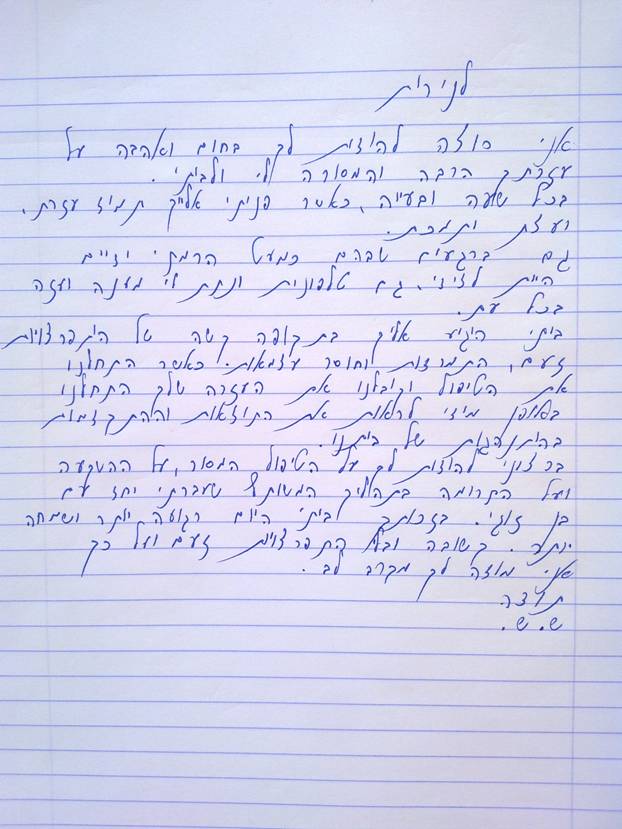 לנירית
אני רוצה להודות לך בחום ואהבה על
עזרתך הרבה והמסורה לי ולביתי.
בכל שעה ובעייה, כאשר פניתי אלייך תמיד עזרת,
יעצת ותמכת.
גם ברגעים שבהם כמעט הרמתי ידיים
היית לצידי, גם טלפונית ונתת לי מענה ועזרה
בכל עת.
ביתי הגיע אליך בתקופה קשה של התפרצויות
זעם, התמרדות וחוסר עצמאות. כאשר התחלנו
את הטיפול וקיבלנו את העזרה שלך התחלנו
באופן מידי לראות את התוצאות וההתקדמות
בהתנהגות של ביתנו.
ברצוני להודות לך על הטיפול המסור, על ההשקעה
ועל התרומה בתהליך המשותף שעברתי יחד עם
בן זוגי. בזכותך ביתי היום רגועה יותר ושמחה
יותר. קשובה ובלי התפרצויות זעם ועל כך
אני מודה לך מקרב לב.
תודה
ש.ש.